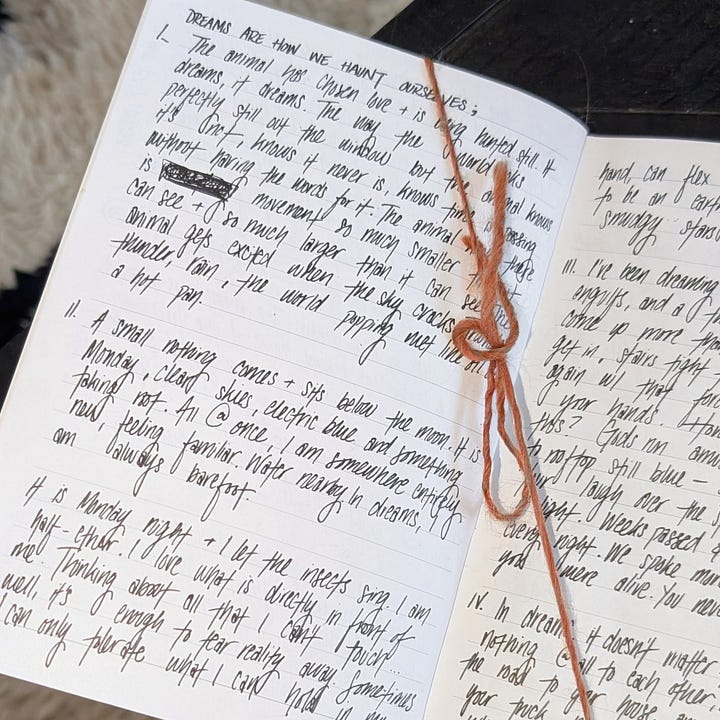 DREAMS ARE HOW WE HAUNT OURSELVES;
I. The animal has chosen love + is being hunted still. It
dreams, it dreams. The way the world looks
perfectly still out the window but the animal knows
it's not, knows it never is, knows time is passing
without having the words for it. The animal there
is movement so much smaller than it
can see + so much larger than it can see. The
animal gets excited when the sky cracks
thunder, rain, the world popping wet like oil
a hot pan.
II. A small nothing comes + sits below the moon. It is
Monday, clear skies, electric blue and something
taking root. All @ once, I am somewhere entirely
new, feeling familiar. Water nearby. In dreams, I
am always barefoot.
It is Monday night + I let the insects sing. I am
half-ether. I love what is directly in front of
me. Thinking about all that I can't touch...
well, it's enough to tear reality away. Sometimes
I can only tolerate what I can hold in my
hand, can flex
to be an
smudgy stars
III. I've been dreaming
engulfs, and a
come up more than
get in, stairs tight
again w/ that
your hands.
this? Ends
rooftop still blue –
laugh over the
light. Weeks passed
every night. We spoke
you were alive. You
IV. In dreams, it doesn't matter
nothing @ all to each other.
the road to your house
your truck